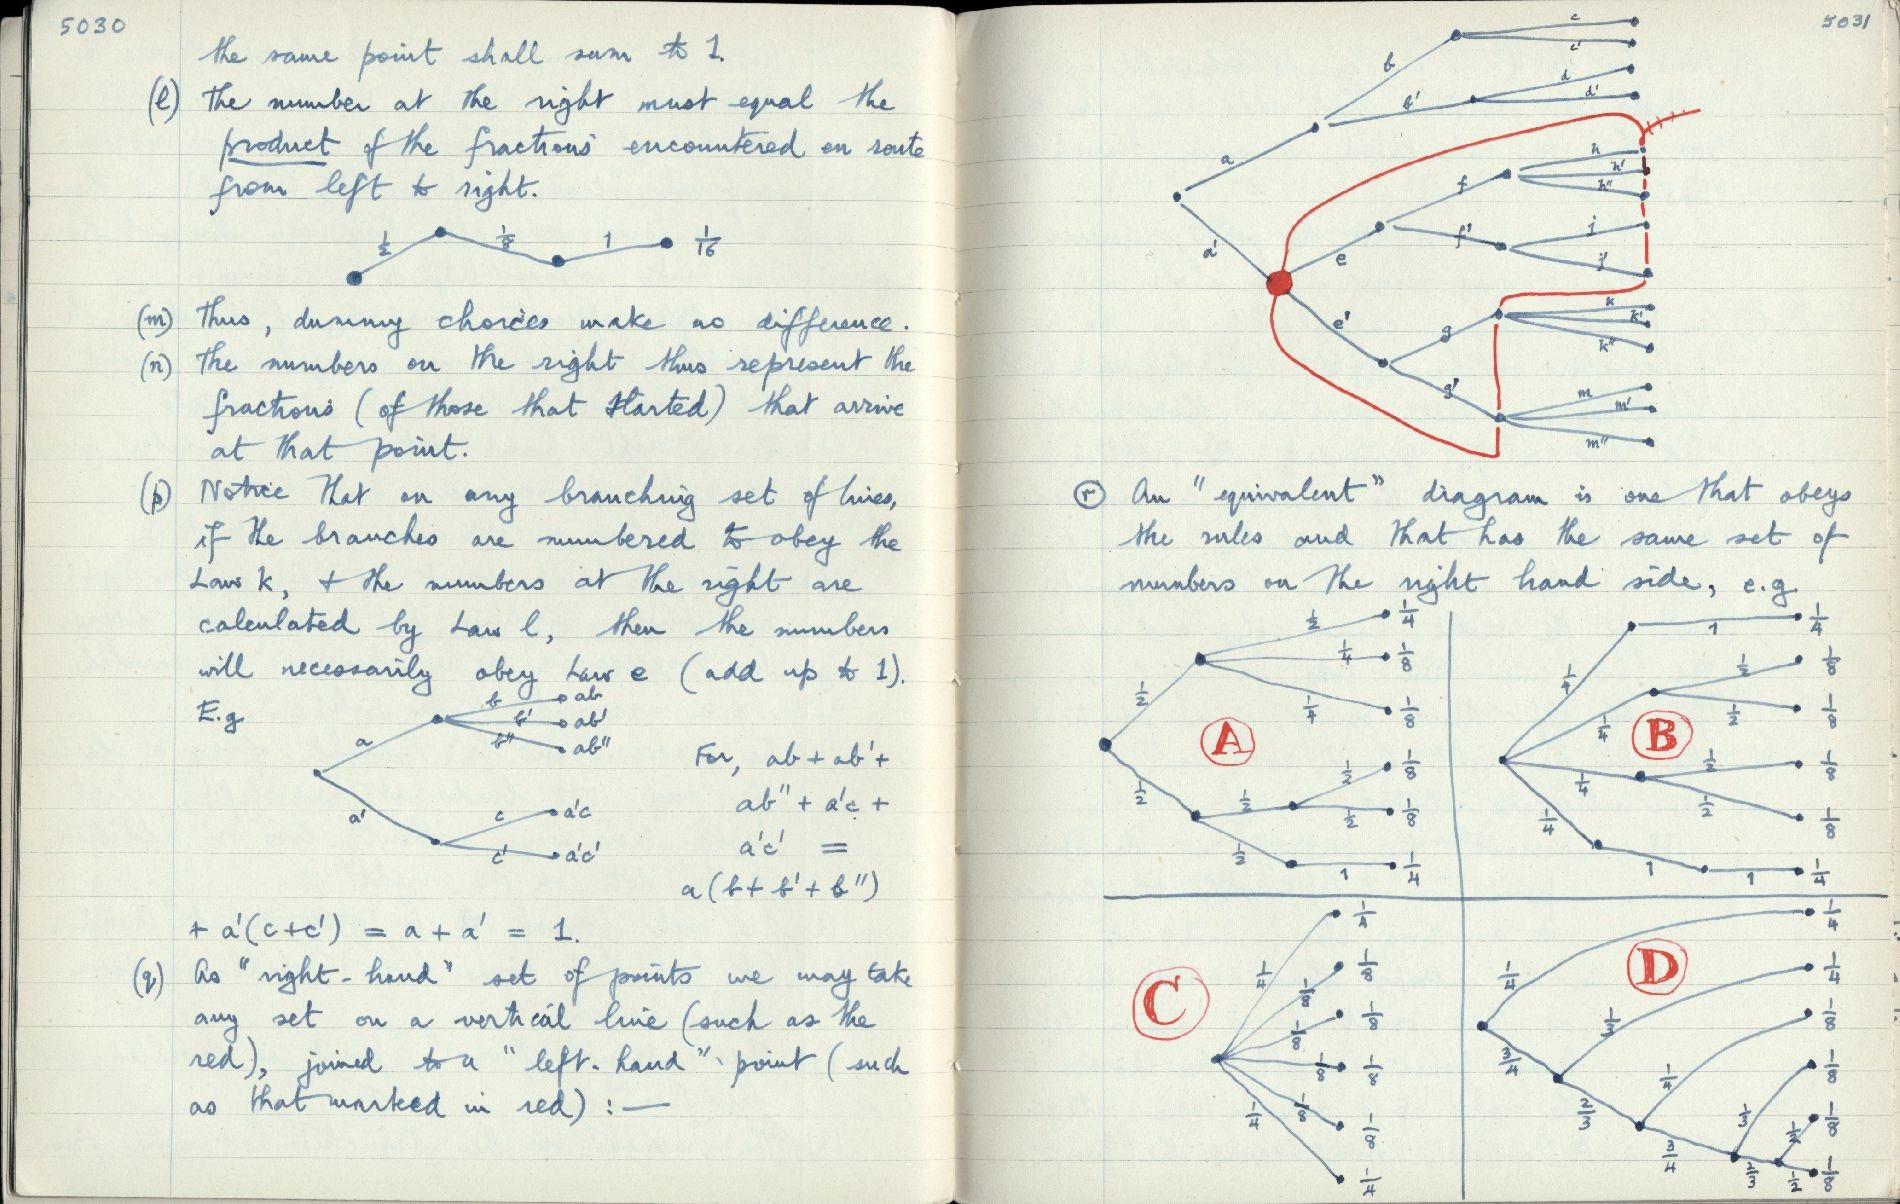 5030
the same point shall sum to 1.
(l) The number at the right must equal the
product of the fractions encountered en route
from left to right.
1/2 1/8 1 1/16
(m) Thus, dummy choices make no difference.
(n) The numbers on the right thus represent the
fractions (of those that started) that arrive
at that point.
(p) Notice that on any branching set of lines,
if the branches are numbered to obey the
Law k, + the numbers at the right are
calculated by Law l, then the numbers
will necessarily obey Law e (add up to 1).
E.g
a b b' b'' ab ab' ab''
a' c c' a'c a'c'
For, ab + ab' +
ab'' + a'c +
a'c' =
a(b + b' + b'')
+ a'(c+c') = a + a' = 1.
(q) As "right-hand" set of points we may take
any set on a vertical line (such as the
red), joined to a "left-hand" point (such
as that marked in red) :—
5031
a b c c'
b' d d'
a' e f h h' h''
f' j j'
e' g k k' k''
g' m m' m''
(r) An "equivalent" diagram is one that obeys
the rules and that has the same set of
numbers on the right hand side, e.g.
A
1/2 1/2 1/4
1/4 1/8
1/4 1/8
1/2 1/2 1/2 1/8
1/2 1/8
1/2 1 1/4
B
1/4 1 1/4
1/4 1/2 1/8
1/2 1/8
1/4 1/2 1/8
1/2 1/8
1/4 1 1 1/4
C
1/4 1/4
1/8 1/8
1/8 1/8
1/8 1/8
1/8 1/8
1/4 1/4
D
1/4 1/4
3/4 1/3 1/4
2/3 1/4 1/8
3/4 1/3 1/8
2/3 1/2 1/8
1/2 1/8